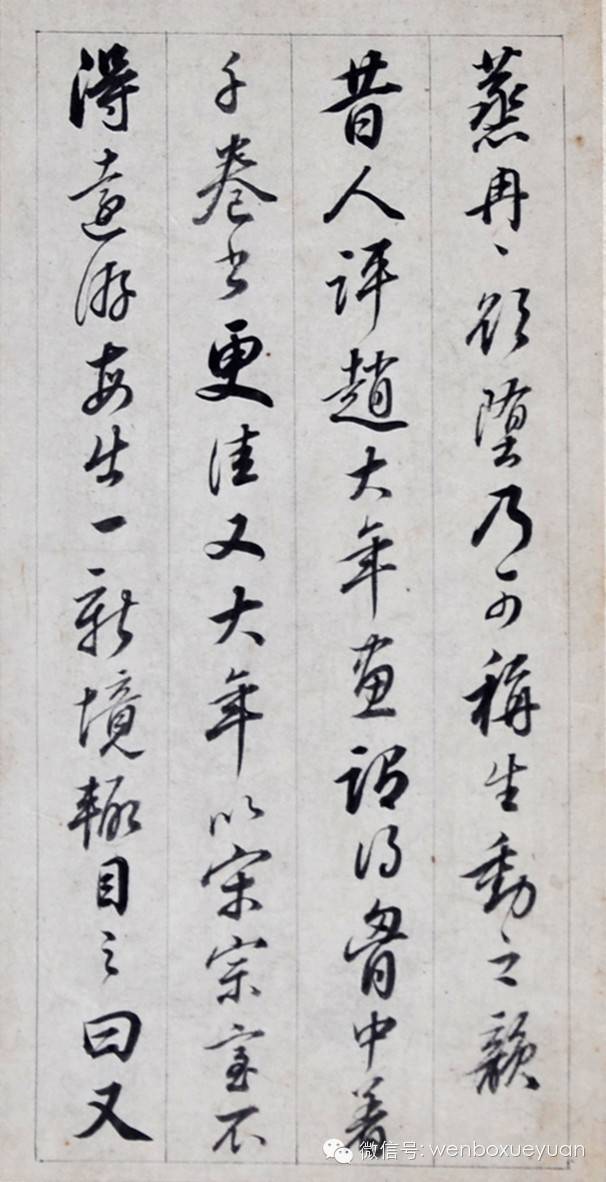 蒸冉〻欲墮乃可稱生動之韻
昔人評趙大年畫謂得胷中著
千卷書更佳又大年以宋宗室不
得遠游每出一新境輒目之曰又
微信号: wenboxueyuan